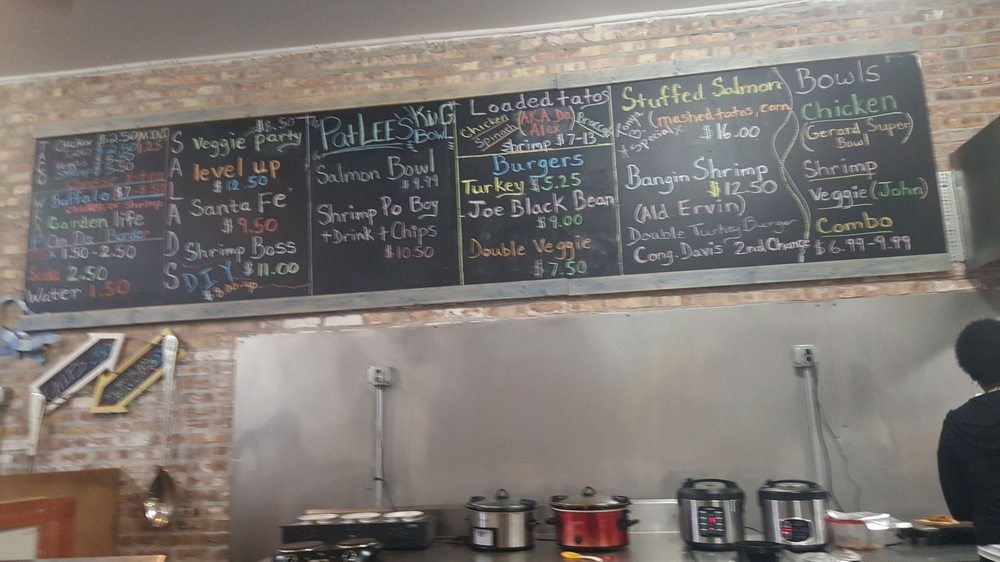 TACOS
Chicken $2.50 MINI
WRAPS
Buffalo $7
chicken or shrimp
Garden life
1.50-2.50
Soda 2.50
Water 1.50
SALADS
$8.50
Veggie party
level up
$12.50
"Santa Fe"
$9.50
Shrimp Boss
$11.00
DIY
$8.00-up
The
PatLEE'S
King
Bowl
for
Salmon Bowl
$9.99
Shrimp Po Boy
+Drink + Chips
$10.50
Loadedtatos
Chicken (AKA Da Alex) Broccoli
Spinach
shrimp $7-13
Burgers
Turkey $5.25
Joe Black Bean
$9.00
Double Veggie
$7.50
Stuffed Salmon
(mashedtatos, corn
$16.00
Bangin Shrimp
$12.50
(Ald. Ervin)
Double Turkey Burger
Cong. Davis' 2nd Chance
Bowls
Chicken
(Gerard Super)
Bowl
Shrimp
Veggie (John)
Combo
$6.99-9.99